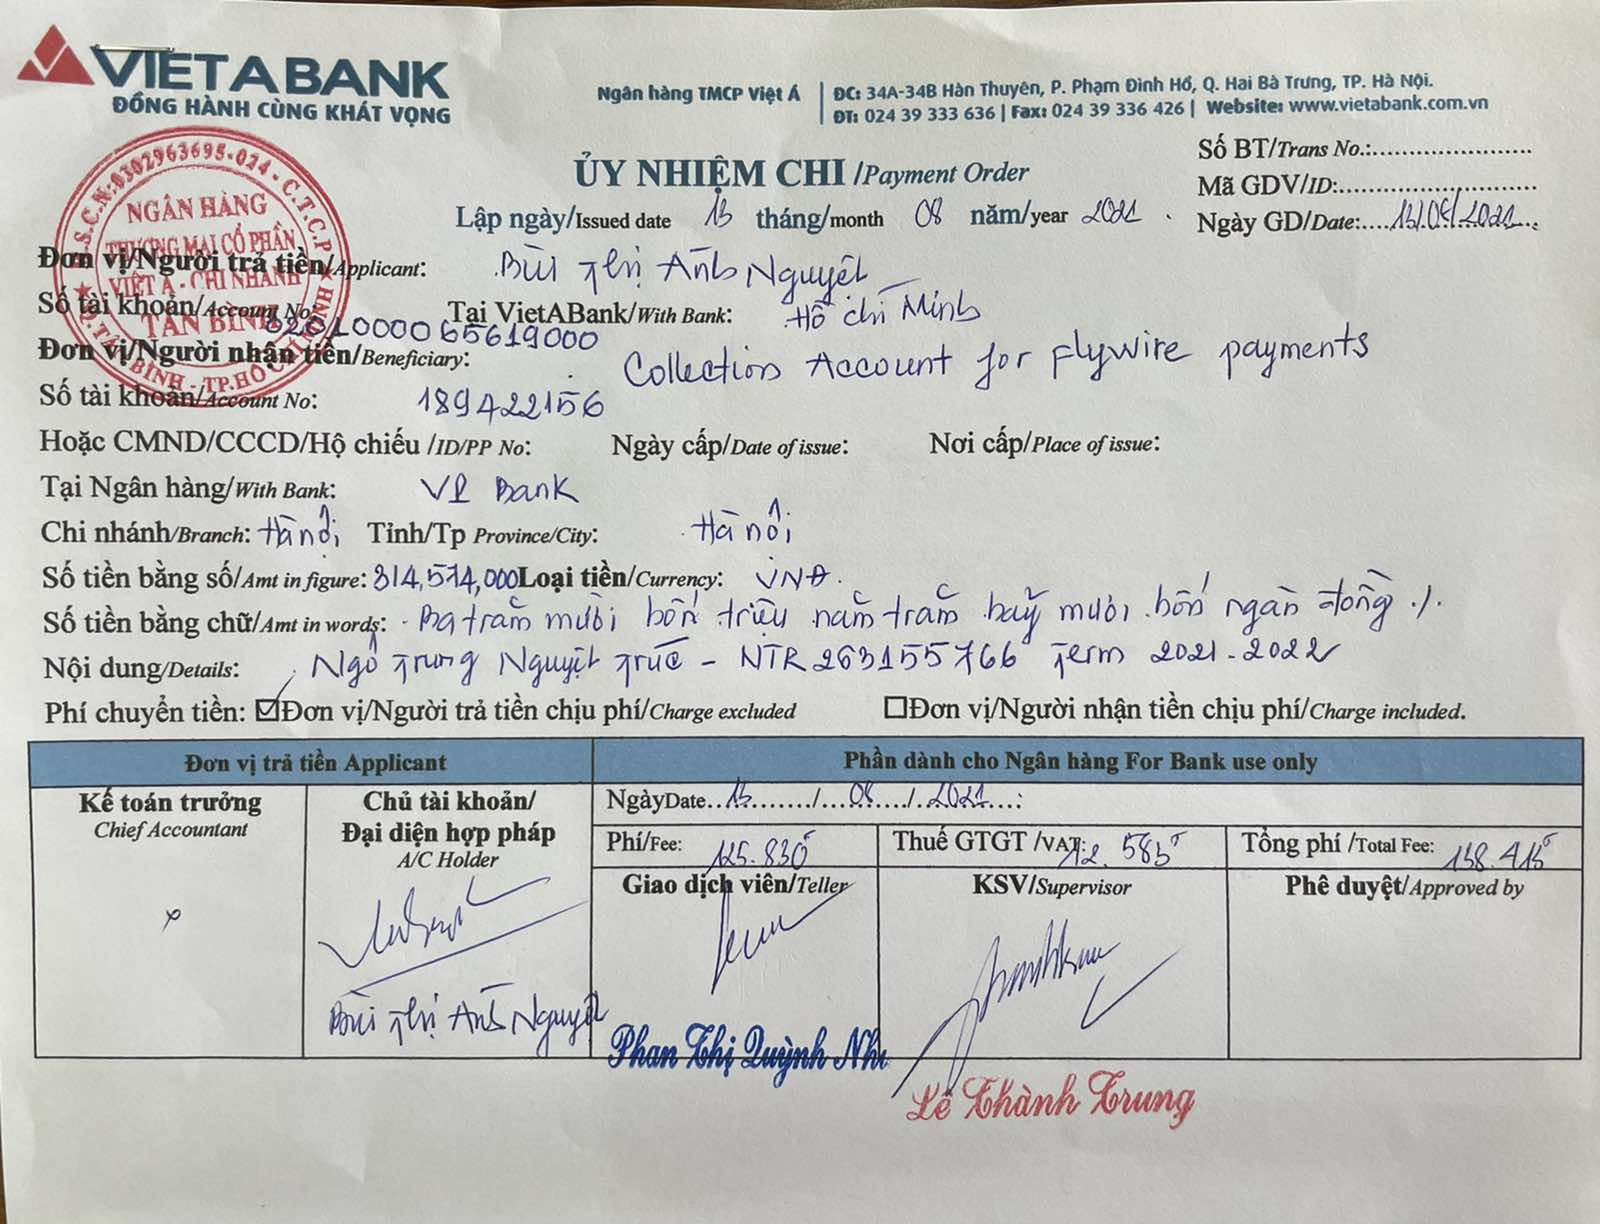 VIETABANK
ĐỒNG HÀNH CÙNG KHÁT VỌNG
Ngân hàng TMCP Việt Á
ĐC: 34A-34B Hàn Thuyên, P. Phạm Đình Hổ, Q. Hai Bà Trưng, TP. Hà Nội.
ĐT: 024 39 333 636 | Fax: 024 39 336 426 | Website: www.vietabank.com.vn
Số BT/Trans No.:
Mã GDV/ID:
Ngày GD/Date: 13/08/2021
ỦY NHIỆM CHI /Payment Order
Lập ngày/Issued date 13 tháng/month 08 năm/year 2021
S.C.N:0302963695-024 - C.T.C.P
NGÂN HÀNG
THƯƠNG MẠI CỔ PHẦN
VIỆT Á - CHI NHÁNH
TÂN BÌNH
Q. TÂN BÌNH - TP. HỒ CHÍ MINH
Đơn vị/Người trả tiền/Applicant: Bùi Thị Ánh Nguyệt
Số tài khoản/Account No: 8201000065619000 Tại VietABank/With Bank: Hồ Chí Minh
Đơn vị/Người nhận tiền/Beneficiary: Collection Account for flywire payments
Số tài khoản/Account No: 189422156
Hoặc CMND/CCCD/Hộ chiếu /ID/PP No: Ngày cấp/Date of issue: Nơi cấp/Place of issue:
Tại Ngân hàng/With Bank: VP Bank
Chi nhánh/Branch: Hà nội Tỉnh/Tp Province/City: Hà nội
Số tiền bằng số/Amt in figure: 314,574,000 Loại tiền/Currency: VNĐ
Số tiền bằng chữ/Amt in words: Ba trăm mười bốn triệu năm trăm bảy mươi bốn ngàn đồng ./.
Nội dung/Details: Ngô Trung Nguyệt Trúc - NTR263155766 Term 2021-2022
Phí chuyển tiền: ☑Đơn vị/Người trả tiền chịu phí/Charge excluded ☐Đơn vị/Người nhận tiền chịu phí/Charge included.
Đơn vị trả tiền Applicant
Phần dành cho Ngân hàng For Bank use only
Kế toán trưởng
Chief Accountant
x
Chủ tài khoản/
Đại diện hợp pháp
A/C Holder
Bùi Thị Ánh Nguyệt
NgàyDate 13 / 08 / 2021
Phí/Fee: 125.830đ
Thuế GTGT /VAT: 12.583đ
Tổng phí /Total Fee: 138.413đ
Giao dịch viên/Teller
Phan Thị Quỳnh Nhi
KSV/Supervisor
Lê Thành Trung
Phê duyệt/Approved by